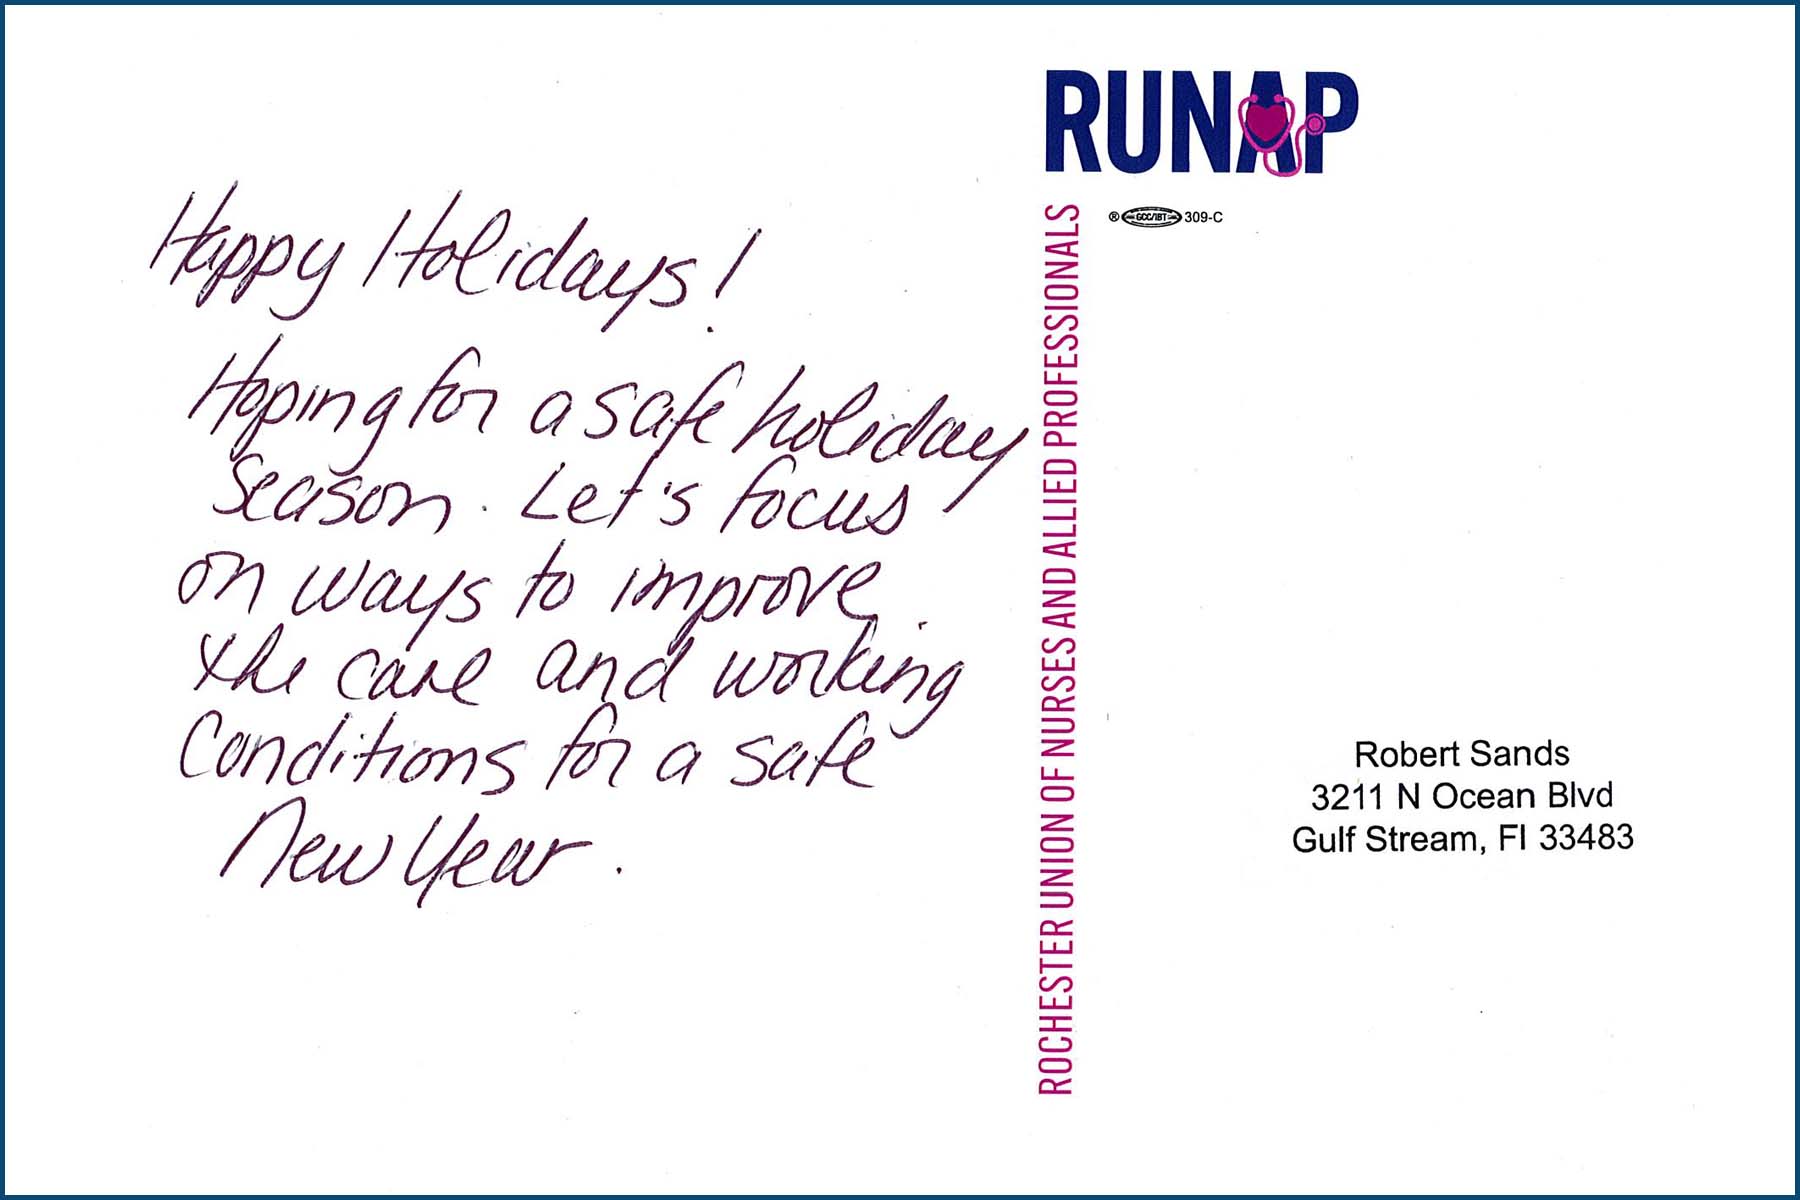 Happy Holidays!
Hoping for a safe holiday
season. Let's focus
on ways to improve
the care and working
conditions for a safe
New Year.
RUNAP
® GCC/IBT 309-C
ROCHESTER UNION OF NURSES AND ALLIED PROFESSIONALS
Robert Sands
3211 N Ocean Blvd
Gulf Stream, Fl 33483